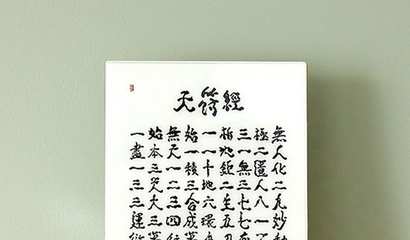 天符經
一始無始一析三極無
盡本天一一地一二人
一三一積十鉅無匱化
三天二三地二三人二
三大三合六生七八九
運三四成環五七一妙